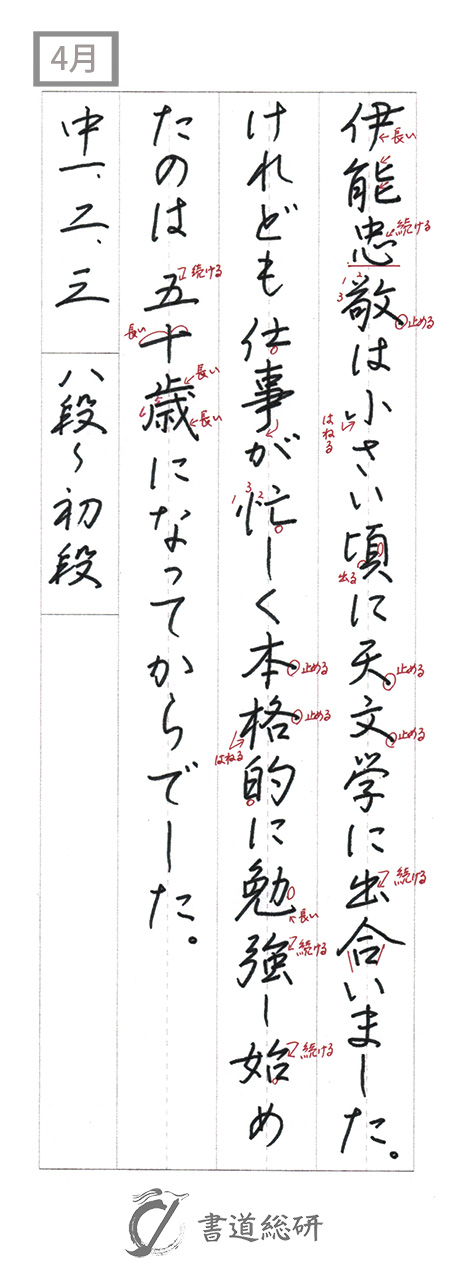 4月
伊能忠敬は小さい頃に天文学に出合いました。
長い
続ける
1 2 3
止める
はねる
出る
止める
止める
続ける
けれども仕事が忙しく本格的に勉強し始め
1 3 2
止める
止める
はねる
長い
続ける
続ける
たのは五十歳になってからでした。
続ける
長い
長い
長い
中一、二、三
八段〜初段
書道総研